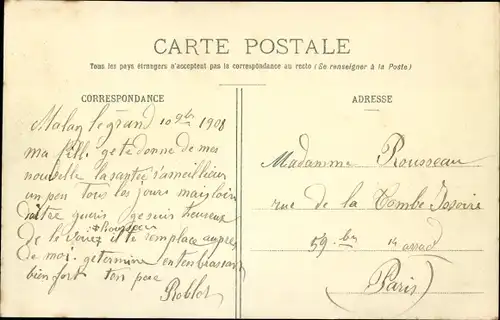 CARTE POSTALE
Tous les pays étrangers n'acceptent pas la correspondance au recto (Se renseigner à la Poste)
CORRESPONDANCE
Malay le grand 10 9bre 1908
ma fille ge te donne de mes
nouvelle la santee s'ameillieu
un peu tous les jours mais loin
d'être gueris ge suis heureux
de le
Rousseau
il te remplace aupres
de moi. ge termine en t'enbrassan
bien fort ton pere
Roblot
ADRESSE
Madamme Rousseau
rue de la Tombe Issoire
59 bis 14 arrad
(Paris)